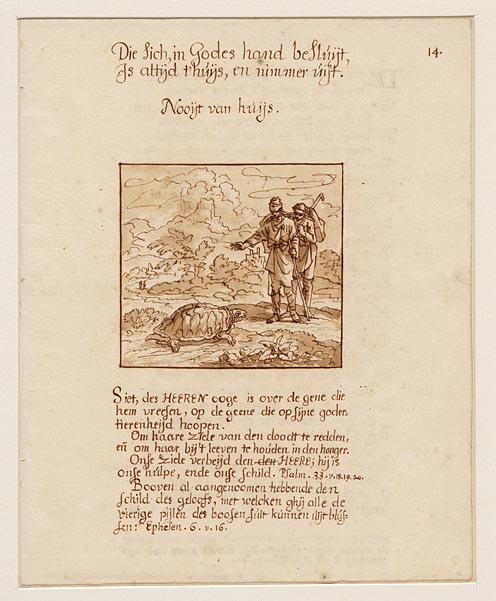 Die sich, in Godes hand besluijt,
Is altijd t'huijs, en nimmer uijt.
14.
Nooijt van huijs.
Siet, des HEEREN ooge is over de gene die
hem vreesen, op de geene die op sijne goeder-
tierenheijd hoopen.
Om haare ziele van den doodt te redden,
en om haar bij't leeven te houden in den honger.
Onse ziele verbeijd den HEERE; hij is
onse hulpe, ende onse schild. Psalm. 33. v. 18. 19. 20.
Booven al aangenoomen hebbende den
schild des geloofs, met welcken ghij alle de
vierige pijlen des boosen sult kunnen uijt blus-
sen: Ephesen. 6. v. 16.